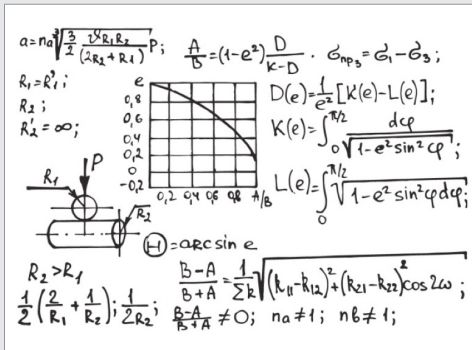 a=na∛(3/2 · ϑR₁R₂/(2R₂+R₁) P);
A/B=(1-e²) D/(K-D) · σпр₃=σ₁-σ₃;
R₁=R₁';
R₂;
R₂'=∞;
e
0,8
0,6
0,4
0,2
0
-0,2
0,2 0,4 0,6 0,8 A/B
D(e)=1/e² [K(e)-L(e)];
K(e)=∫₀^π/2 dφ/√(1-e² sin² φ)
L(e)=∫₀^π/2 √(1-e² sin² φdφ;
P
R₁
R₂
Θ=arcsin e
R₂>R₁
(B-A)/(B+A)=1/Σk √((k₁₁-k₁₂)²+(k₂₁-k₂₂)² cos2ω;
1/2(2/R₁+1/R₂); 1/2R₂; (B-A)/(B+A)≠0; na≠1; nb≠1;